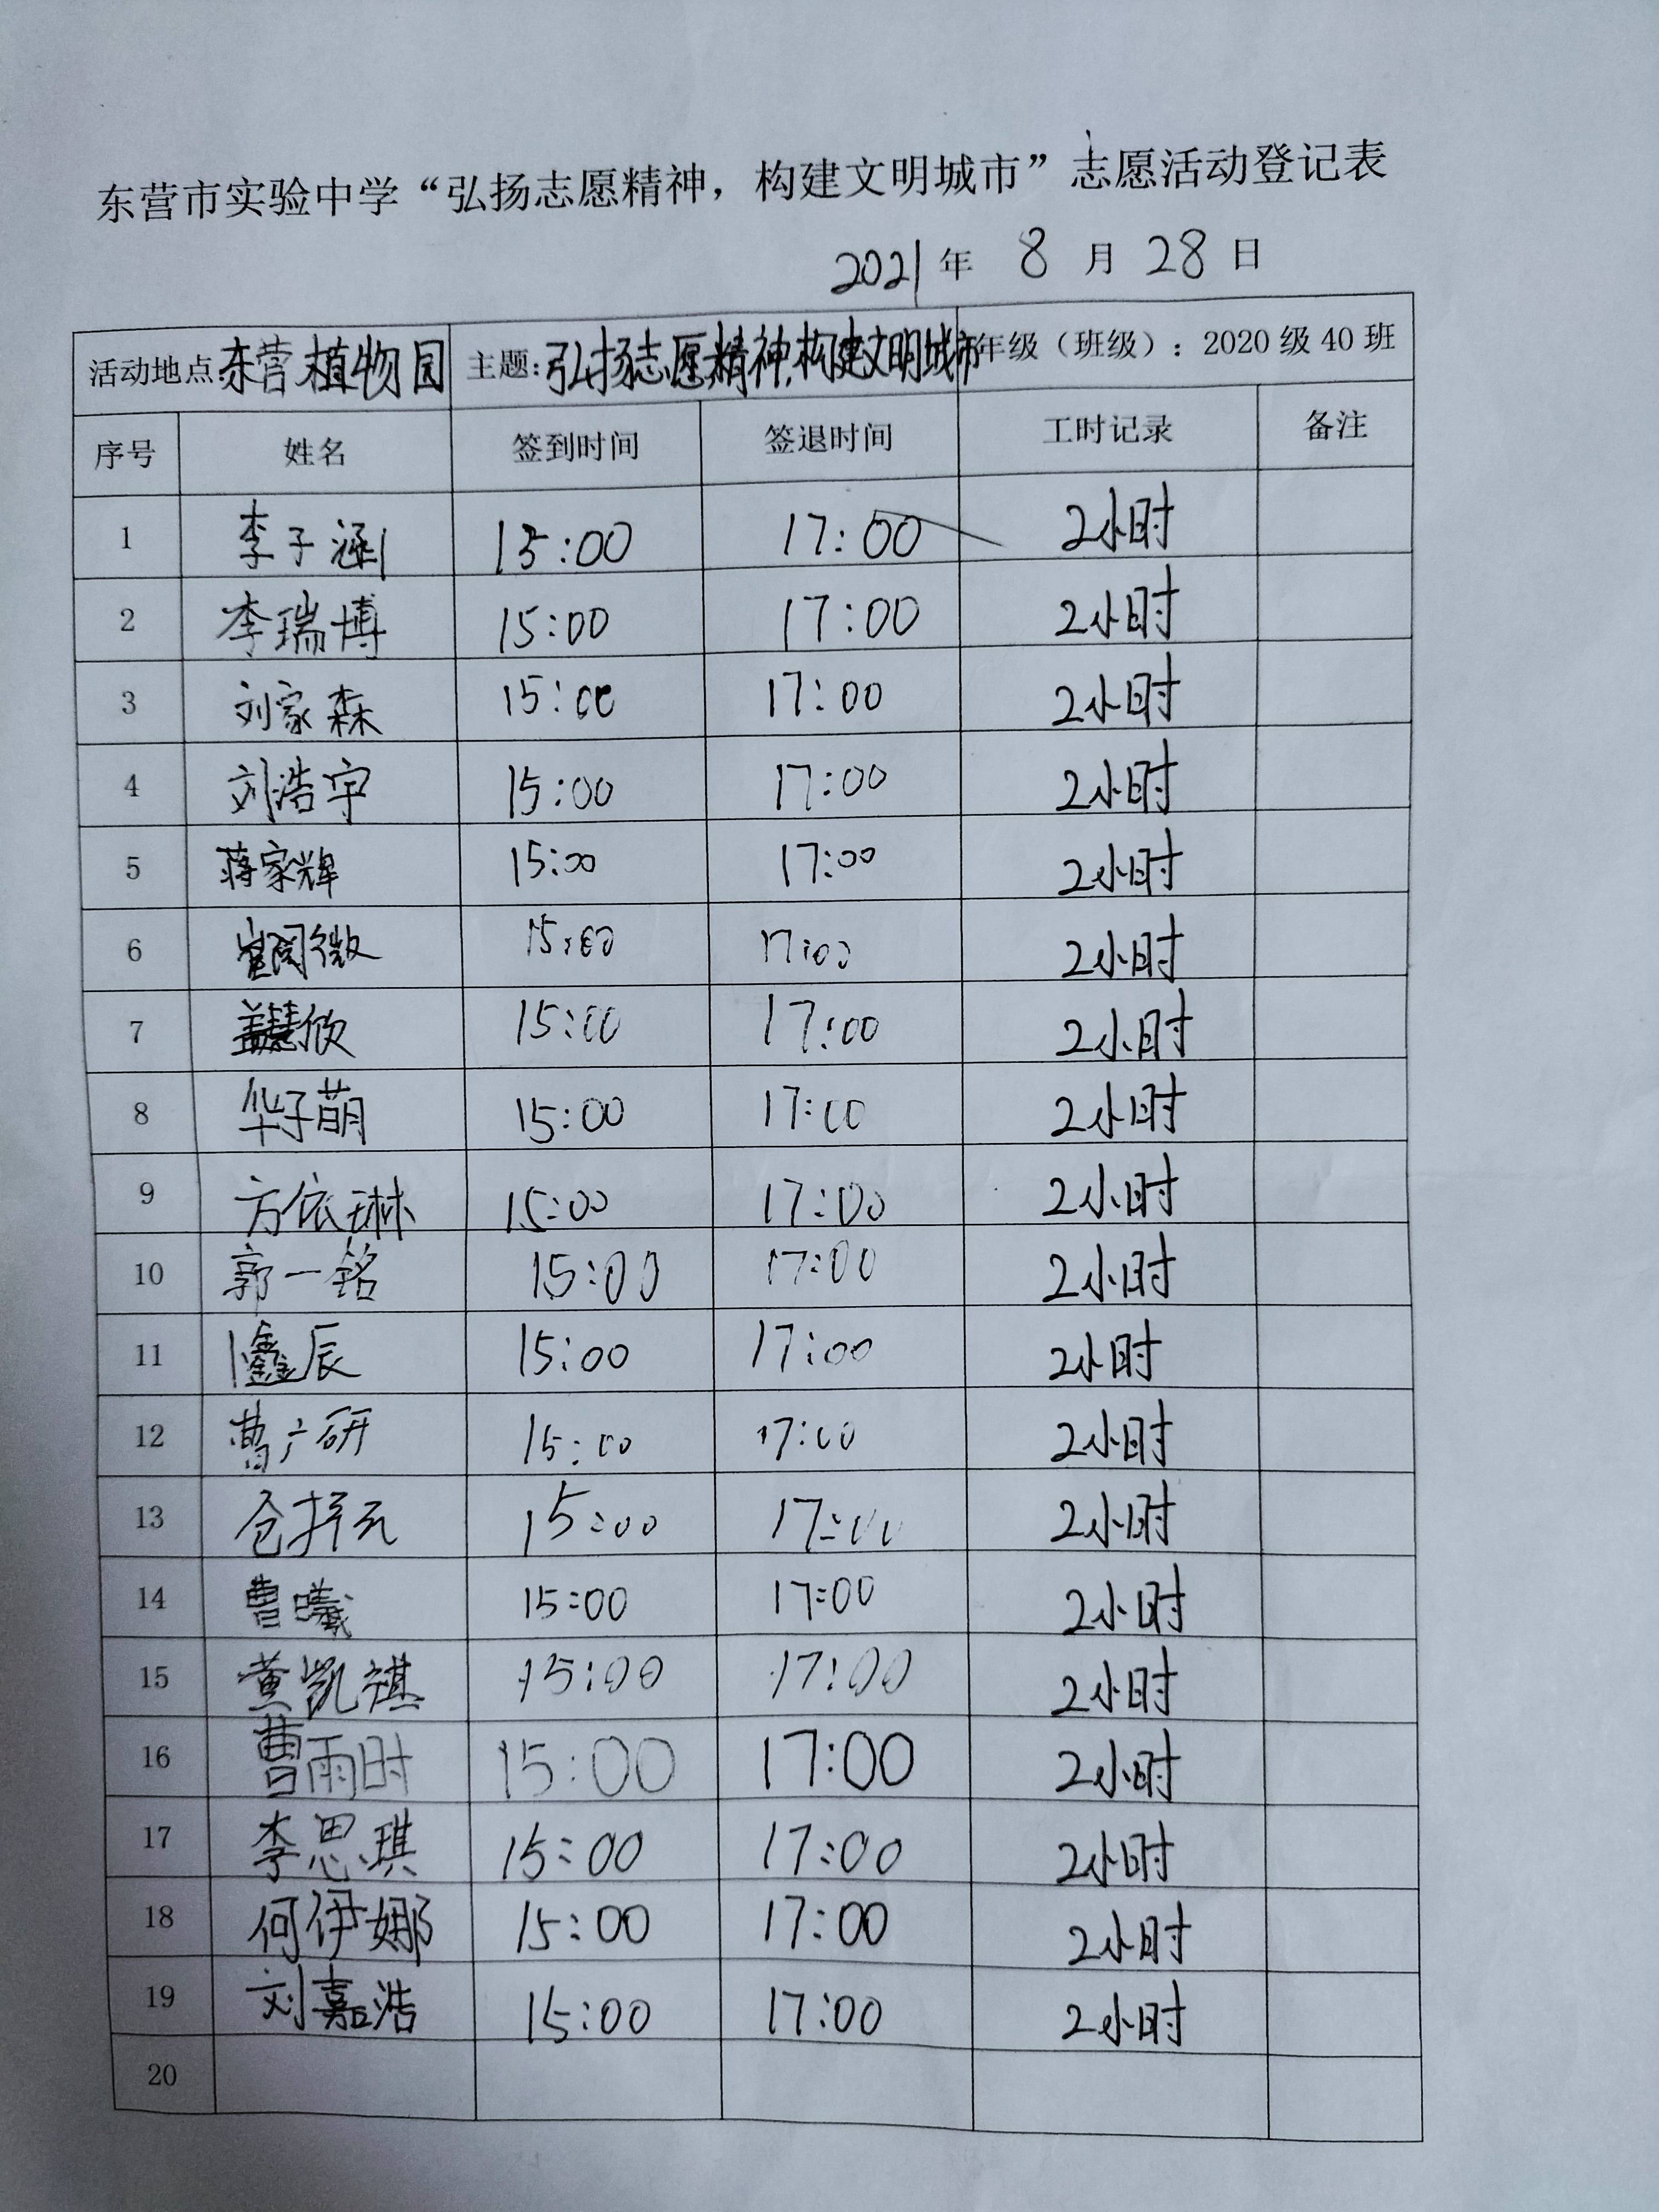 东营市实验中学“弘扬志愿精神，构建文明城市”志愿活动登记表
2021年 8 月 28 日
活动地点:东营植物园 主题:弘扬志愿精神,构建文明城市 年级（班级）：2020级40班
序号 姓名 签到时间 签退时间 工时记录 备注
1 李子涵 15:00 17:00 2小时
2 李瑞博 15:00 17:00 2小时
3 刘家森 15:00 17:00 2小时
4 刘浩宇 15:00 17:00 2小时
5 蒋家辉 15:00 17:00 2小时
6 15:00 17:00 2小时
7 15:00 17:00 2小时
8 华子萌 15:00 17:00 2小时
9 方依琳 15:00 17:00 2小时
10 郭一铭 15:00 17:00 2小时
11 15:00 17:00 2小时
12 曹广研 15:00 17:00 2小时
13 15:00 17:00 2小时
14 曹曦 15:00 17:00 2小时
15 黄凯祺 15:00 17:00 2小时
16 曹雨时 15:00 17:00 2小时
17 李思琪 15:00 17:00 2小时
18 何伊娜 15:00 17:00 2小时
19 刘嘉浩 15:00 17:00 2小时
20